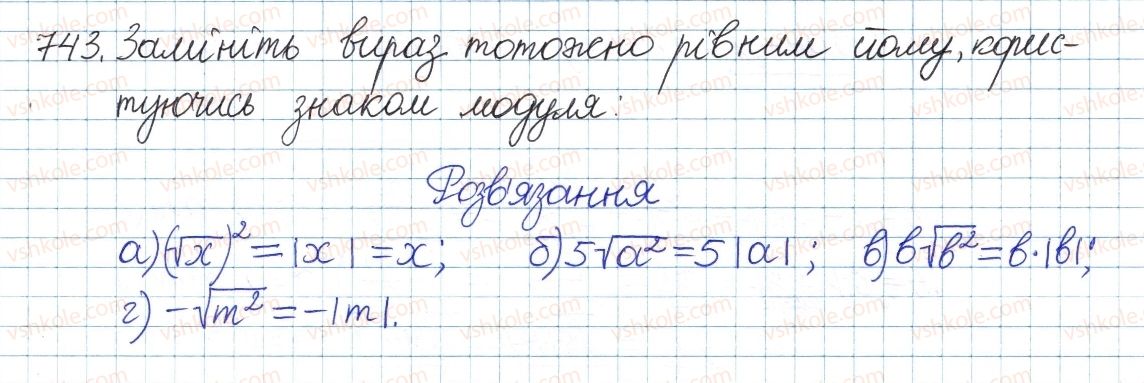 743. Замініть вираз тотожно рівним йому, корис-
туючись знаком модуля:
Розв'язання
а) (√x)² = |x| = x; б) 5√a² = 5|a|; в) b√b² = b·|b|;
г) -√m² = -|m|.